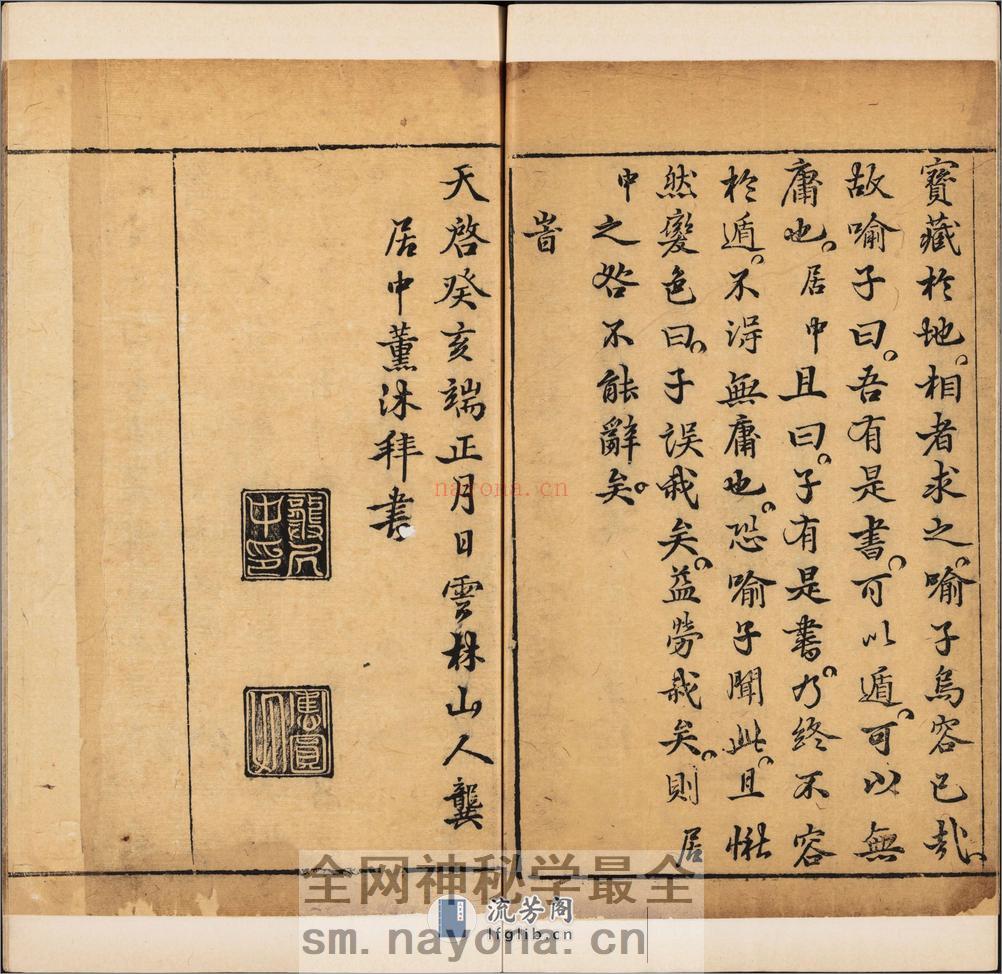 寶藏於地。相者求之。喻子烏容已哉。
故喻子曰。吾有是書。可以遁。可以無
庸也。居中且曰。子有是書。乃終不容
於遁。不淂無庸也。恐喻子聞此。且愀
然變色曰。子誤我矣。益勞我矣。則居
中之咎不能辭矣。
旹
天啓癸亥端正月日雲林山人龔
居中薰沐拜書
龔居中印
nayona.cn
全网神秘学最全
流芳阁
lfglib.cn
sm.nayona.cn